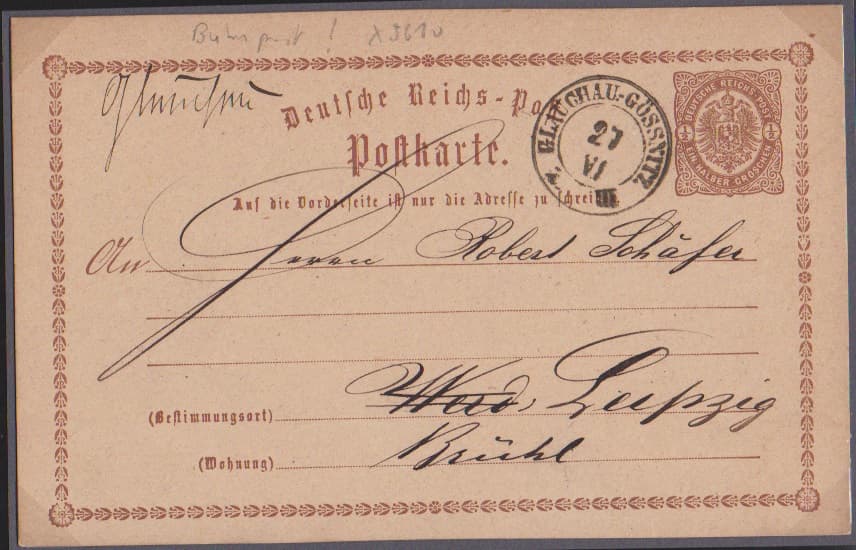 Bahnpost!
Glauchau
Deutsche Reichs-Po
Postkarte.
GLAUCHAU-GÖSSNITZ
27
VI
III
DEUTSCHE REICHS-POST
½ ½
EIN HALBER GROSCHEN
Auf die Vorderseite ist nur die Adresse zu schrei
An Herrn Robert Schäfer
(Bestimmungsort) Leipzig
(Wohnung) Brühl